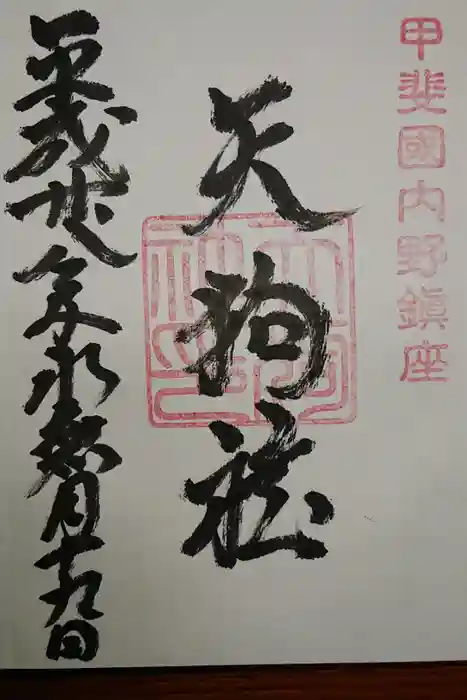 甲斐國内野鎮座
天狗社
平成廿年水無月十九日